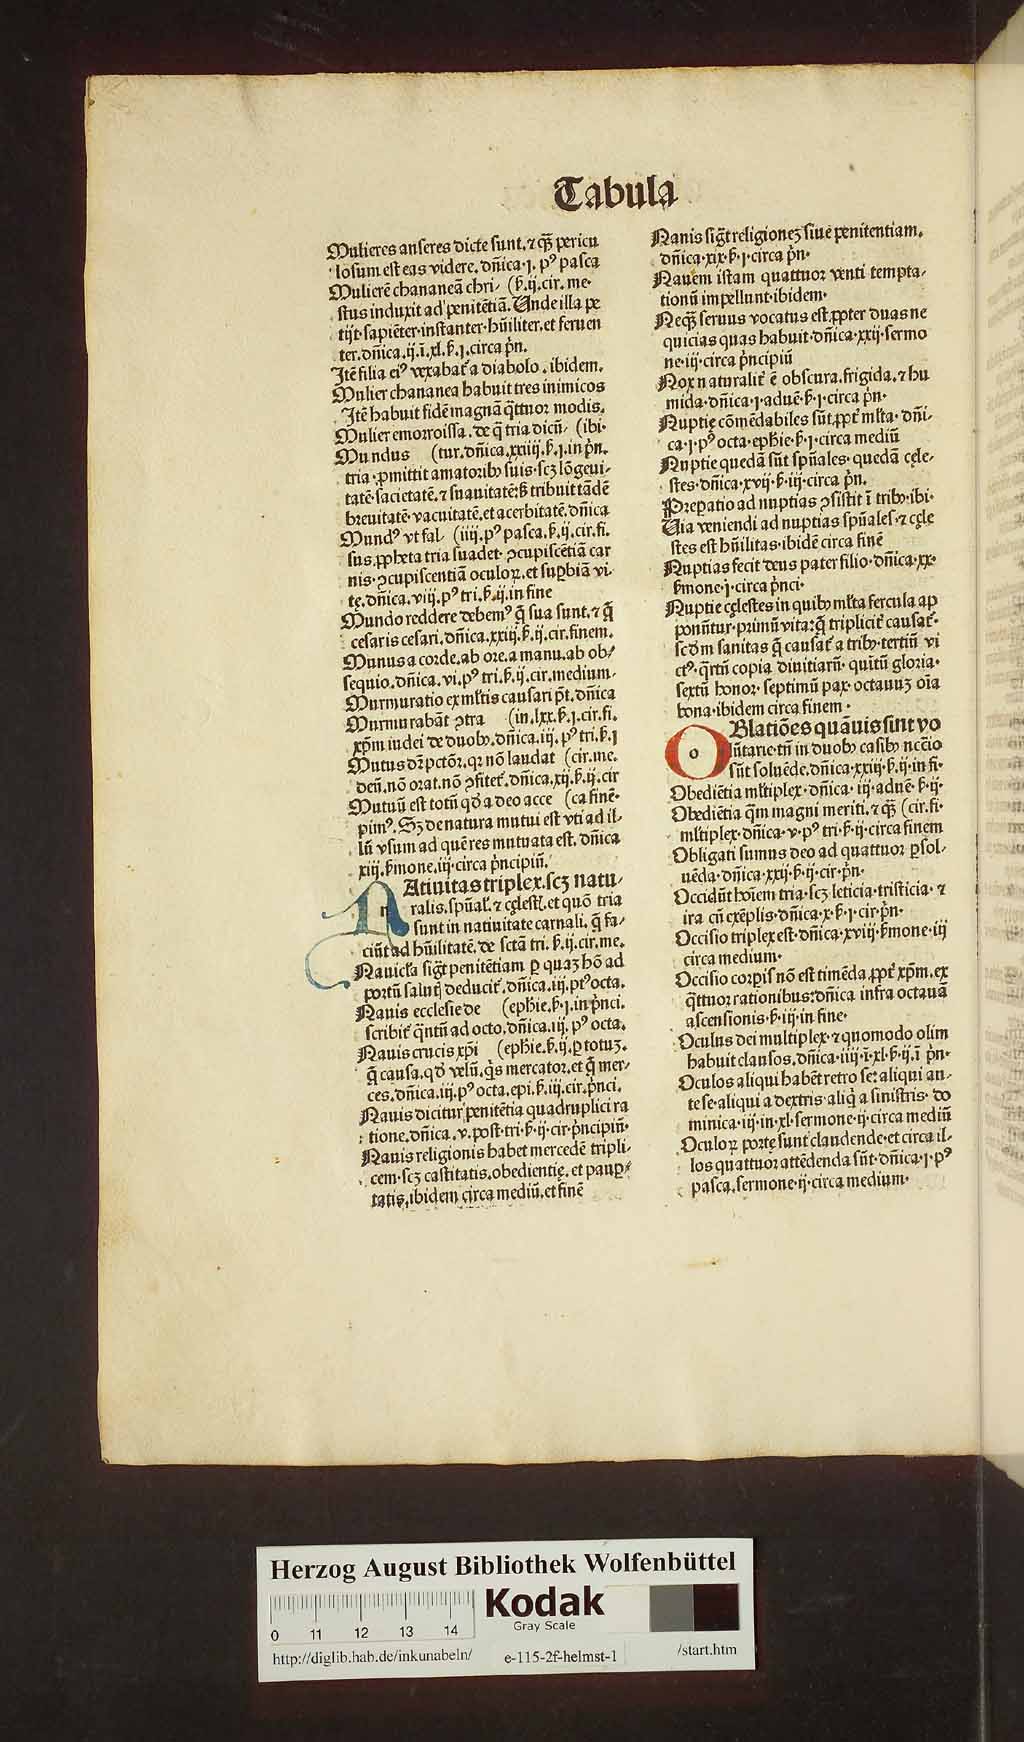 Tabula
Mulieres anseres dicte sunt. ⁊ qꝫ̃ pericu
losum est eas videre. dñica.j. pꝰ pasca
Mulierē chananeā chri- (ẜ.ij.cir.me.
stus induxit ad penitētiā. Unde illa pe
tijt.sapiēter.instanter.hũiliter.et feruen
ter.dñica.ij.ī.xl.ẜ.j.circa pͥn.
Itē filia eiꝰ vexabat̃ a diabolo. ibidem.
Mulier chananea habuit tres inimicos
Itē habuit fidē magnā qͣttuor modis.
Mulier emorroissa. de q̄ tria dicũ- (ibi.
Mundus (tur.dñica.xxiiij.ẜ.j.in pͥn.
tria ꝓmittit amatoribꝰ suis.scꝫ lōgeui-
tatē.sacietatē. ⁊ suauitatē:ẜ tribuit tādē
breuitatē.vacuitatē.et acerbitatē. dñica
Mundꝰ vt fal- (iiij.pꝰ pasca.ẜ.ij.cir.fi.
sus ꝓpheta tria suadet. ꝯcupiscētiā car
nis. ꝯcupiscentiā oculoꝝ. et suꝑbiā vi-
tę.dñica.viij.pꝰ tri.ẜ.ij.in fine
Mundo reddere debemꝰ q̄ sua sunt. ⁊ q̄
cesaris cesari. dñica.xxiij.ẜ.ij.cir.finem.
Munus a corde. ab ore. a manu. ab ob-
sequio. dñica.vi.pꝰ tri.ẜ.ij.cir.medium.
Murmuratio ex ml̃tis causari pt̃. dñica
Murmurabāt ꝯtra (in.lxx.ẜ.j.cir.fi.
xp̄m iudei de duobꝰ. dñica.iij.pꝰ tri.ẜ.j
Mutus dr̃ pctōr. qꝛ nō laudat (cir.me.
deũ. nō orat. nō ꝯfitet̃. dñica.xij.ẜ.ij.cir
Mutuũ est totũ qd̃ a deo acce (ca finē.
pimꝰ. Sꝫ de natura mutui est vti ad il-
lũ vsum ad quē res mutuata est. dñica
xiij.ẜmone.iij.circa pͥncipiũ.
NAtiuitas triplex.scꝫ natu-
ralis. spũal. ⁊ cęlest̃. et quō tria
sunt in natiuitate carnali. q̄ fa-
ciũt ad hũilitatē. de sctā tri.ẜ.ij.cir.me.
Nauicl̃a sigt̃ penitētiam ꝑ quaꝫ hō ad
portũ salutꝭ deducit̃. dñica.iij.ptꝰ octa.
Nauis ecclesie de (ephie.ẜ.j.in pͥnci.
scribit̃ qͣntũ ad octo. dñica.iij.pꝰ octa.
Nauis crucis xp̄i (ephie.ẜ.ij.ꝑ totuꝫ.
q̄ causa. qd̃ velũ. qͥs mercator. et q̄ mer-
ces. dñica.iij.pꝰ octa.epi.ẜ.iij.cir.pͥnci.
Nauis dicitur penitētia quadruplici ra
tione. dñica.v.post.tri.ẜ.ij.cir.pͥncipiũ.
Nauis religionis habet mercedē tripli-
cem.scꝫ castitatis. obedientię. et pauꝑ-
tatis. ibidem circa mediũ. et finē
Nanis sigt̃ religioneꝫ siue penitentiam.
dñica.xix.ẜ.j.circa pͥn.
Nauem istam quattuor venti tempta-
tionũ impellunt.ibidem.
Neqꝫ seruus vocatus est. ꝓpter duas ne
quicias quas habuit.dñica.xxij.sermo
ne.iij.circa pͥncipiũ
Nox naturalit̃ ē obscura. frigida. ⁊ hu
mida.dñica.j.aduē.ẜ.j.circa pͥn.
Nuptię cōmēdabiles sũt. ꝓpt̃ ml̃ta. dñi-
ca.j.pꝰ octa.ephie.ẜ.j.circa mediũ
Nuptie quedā sũt spũales. quedā cęle-
stes.dñica.xvij.ẜ.iij.circa pͥn.
Preꝑatio ad nuptias ꝯsistit ī tribꝰ.ibi.
Uia veniendi ad nuptias spũales. ⁊ cęle
stes est hũilitas.ibidē circa finē
Nuptias fecit deus pater filio.dñica.xx.
ẜmone.j.circa pͥnci.
Nuptie cęlestes in quibꝰ ml̃ta fercula ap
ponũtur.primũ vita:q̄ triplicit̃ causat̃.
scd̃m sanitas q̄ causat̃ a tribꝰ.tertiũ vi
ctꝰ.qͣrtũ copia diuitiarũ. quītũ gloria.
sextũ honor. septimũ pax. octauuꝫ oīa
bona.ibidem circa finem.
OBlatiōes quāuis sint vo
lũtarie.tñ in duobꝰ casibꝰ nccīo
sũt soluēde.dñica.xxiij.ẜ.ij.in fi.
Obediētia ml̃tiplex.dñica.iij.aduē.ẜ.ij.
Obediētia qͣm magni meriti. ⁊ qꝫ̃ (cir.fi.
ml̃tiplex.dñica.v.pꝰ tri.ẜ.ij.circa finem
Obligati sumus deo ad quattuor ꝑsol-
uēda.dñica.xxij.ẜ.ij.cir.pͥn.
Occidũt hoīem tria.scꝫ leticia.tristicia. ⁊
ira cũ exēplis.dñica.x.ẜ.j.cir.pͥn.
Occisio triplex est.dñica.xviij.ẜmone.iij
circa medium.
Occisio corꝑis nō est timēda. ꝓpt̃ xp̄m. ex
qͣttuor rationibus:dñica infra octauā
ascensionis.ẜ.iij.in fine.
Oculus dei multiplex. ⁊ quomodo olim
habuit clausos.dñica.iiij.ī.xl.ẜ.ij.ī pͥn.
Oculos aliqui habēt retro se: aliqui an-
te se.aliqui a dextris. aliqͥ a sinistris. do
minica.iij.in.xl.sermone.ij.circa mediũ
Oculoꝝ portę sunt claudende.et circa il-
los quattuor attēdenda sũt.dñica.j.pꝰ
pasca.sermone.ij.circa medium.
Herzog August Bibliothek Wolfenbüttel
Kodak
Gray Scale
0 11 12 13 14
http://diglib.hab.de/inkunabeln/ e-115-2f-helmst-1 /start.htm